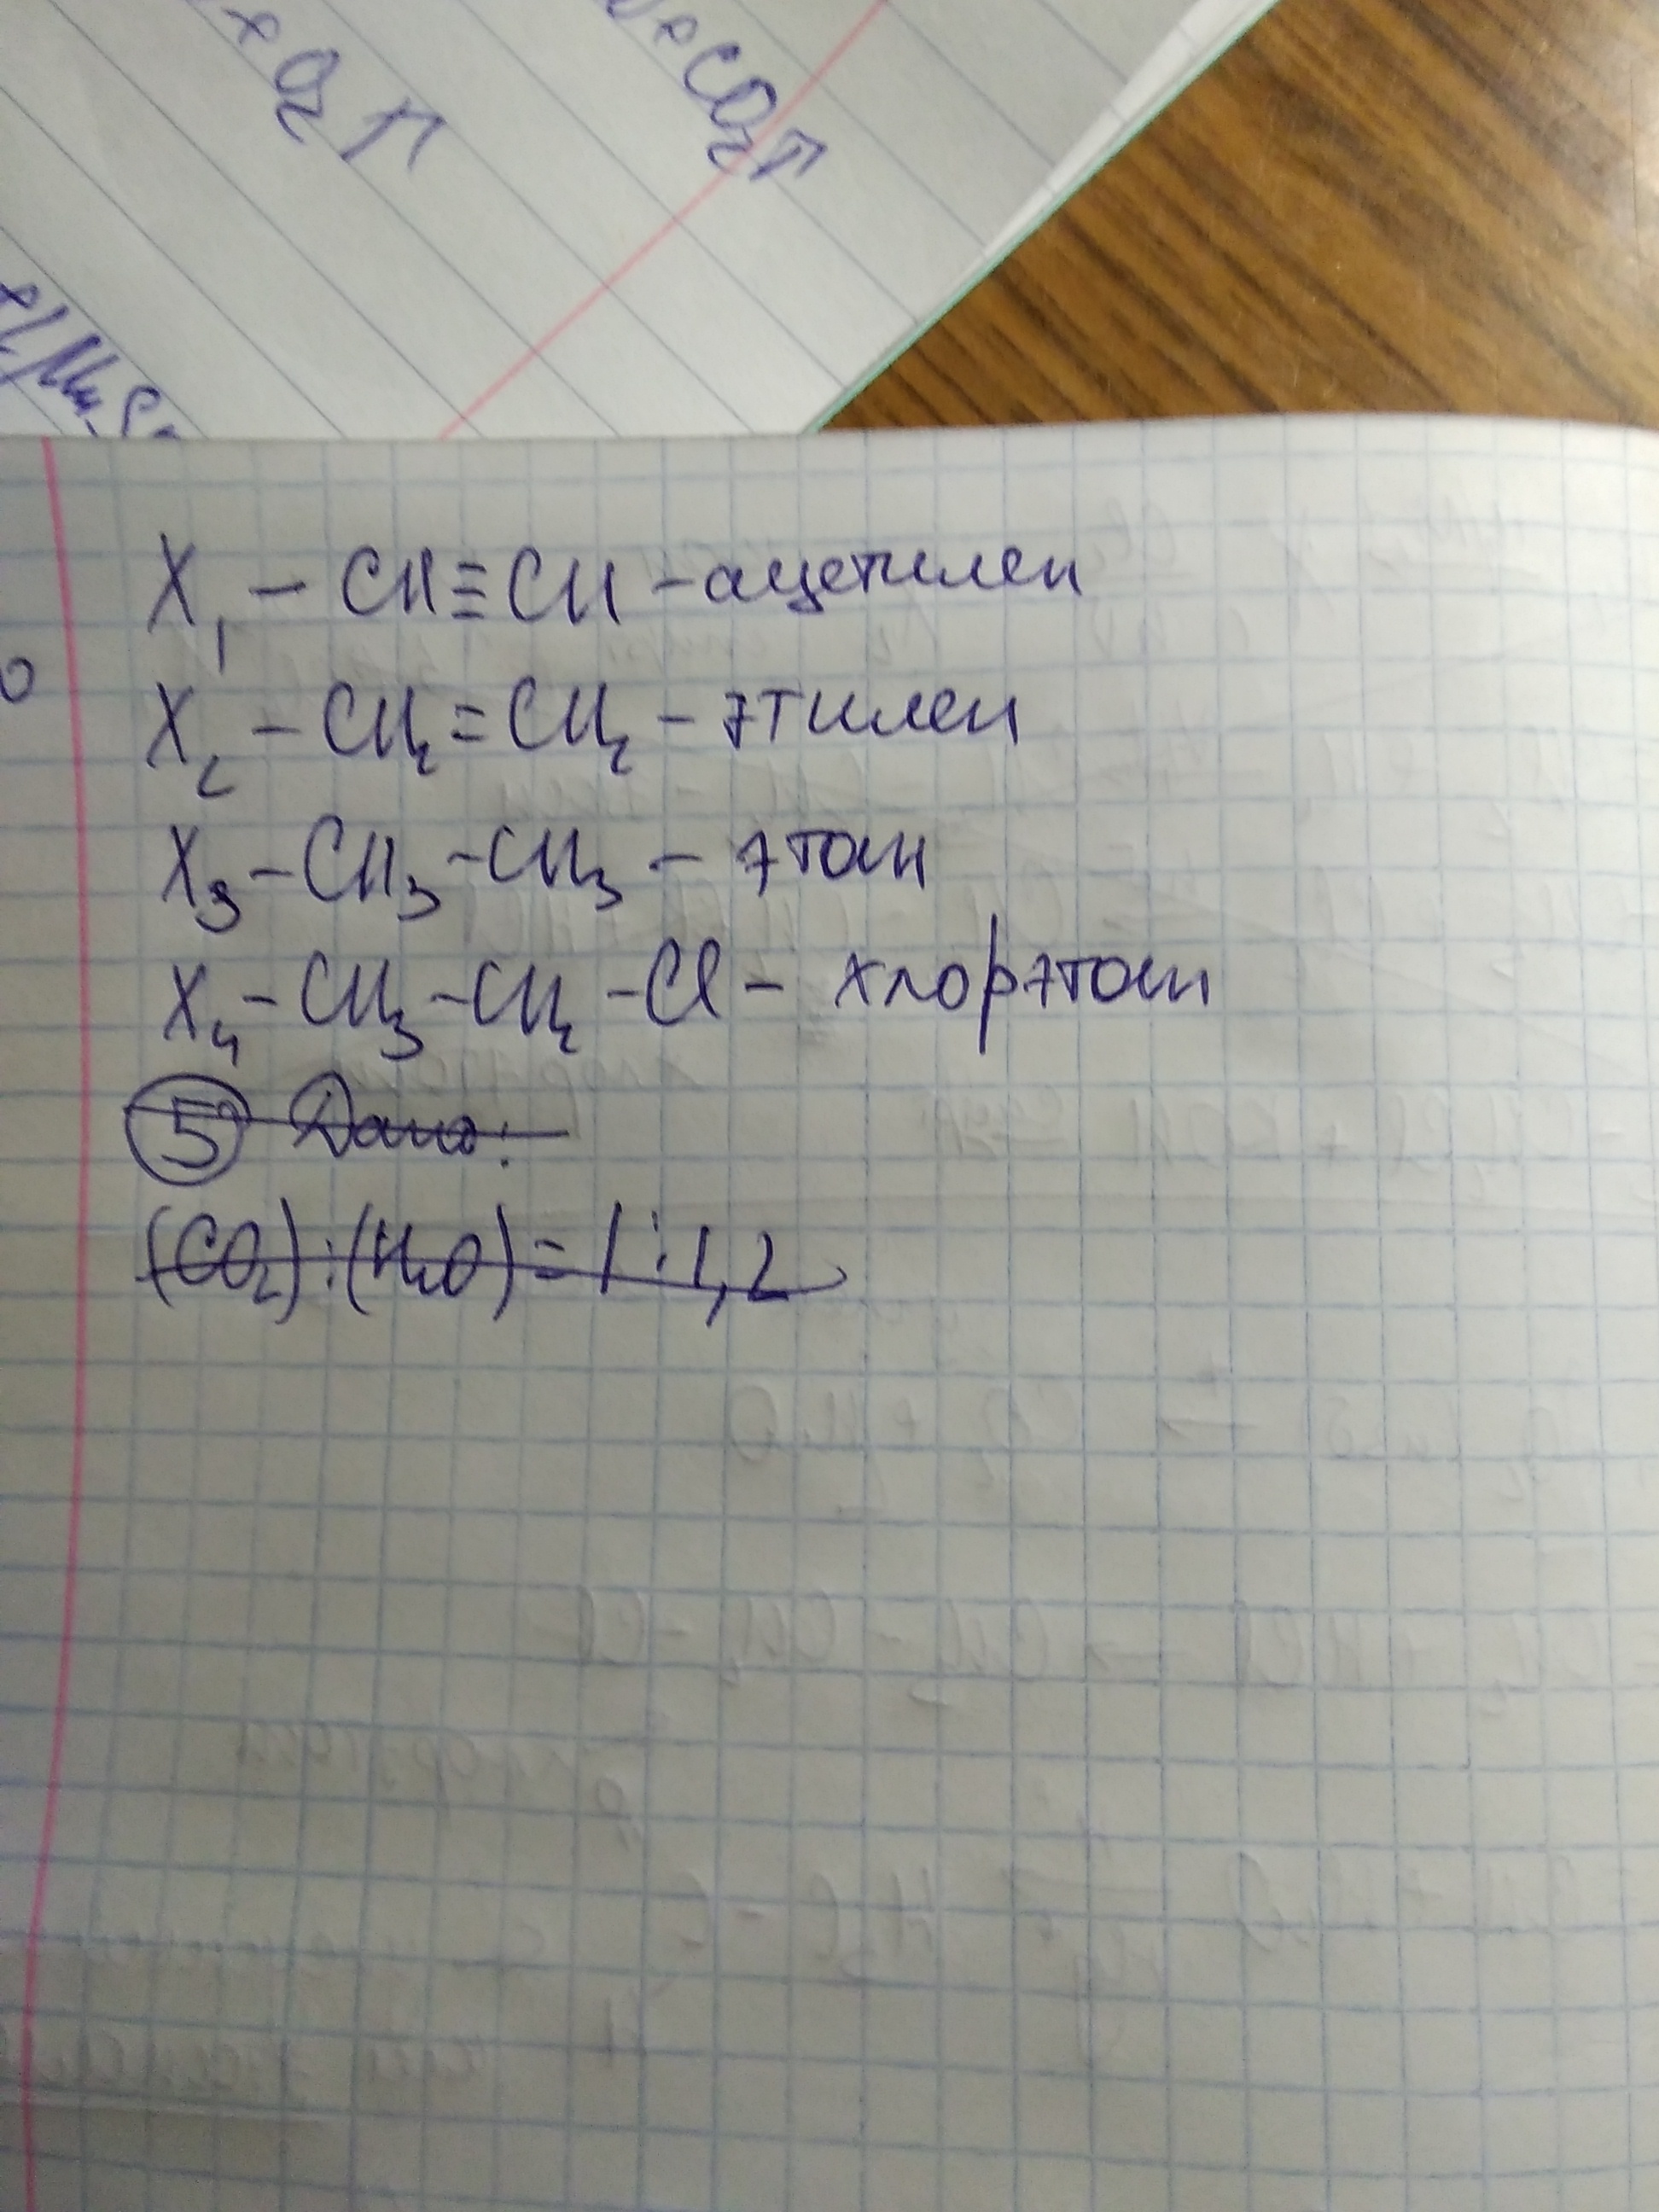 + O₂↑
+ CO₂↑
X₁ – CH≡CH – ацетилен
X₂ – CH₂=CH₂ – этилен
X₃ – CH₃–CH₃ – этан
X₄ – CH₃–CH₂–Cl – хлорэтан
5 Дано:
(CO₂):(H₂O)=1:1,2